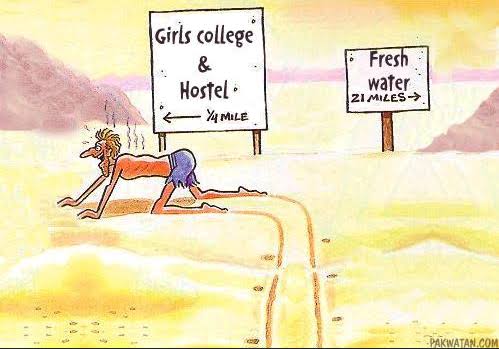 Girls college
&
Hostel
← 1/4 MILE
Fresh
water
21 MILES→
PAKWATAN.COM